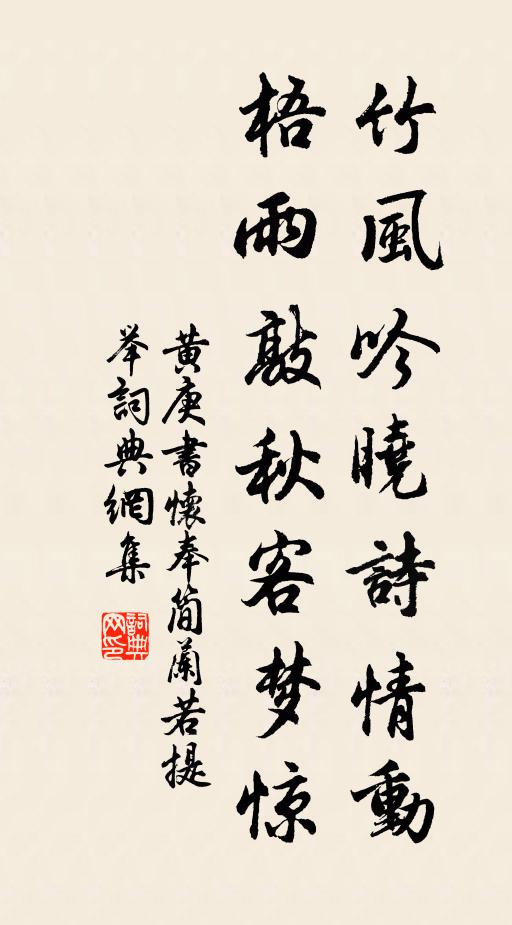 竹風吟曉詩情動
梧雨敲秋客梦惊
黄庚書懷奉简蘭若提
举詞典網集
詞典
网印